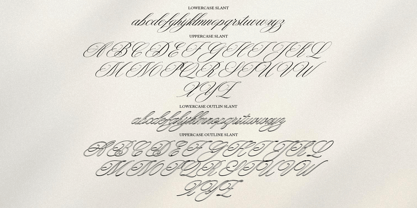 LOWERCASE SLANT
abcdefghijklmnopqrstuvwxyz
UPPERCASE SLANT
ABCDEFGHIJKL
MNOPQRSTUVW
XYZ
LOWERCASE OUTLIN SLANT
abcdefghijklmnopqrstuvwxyz
UPPERCASE OUTLINE SLANT
ABCDEFGHIJKL
MNOPQRSTUVW
XYZ